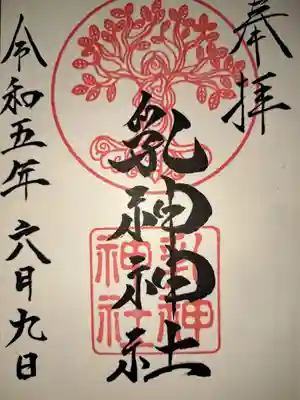 奉拝
乳神神社
乳神
神社
令和五年六月九日